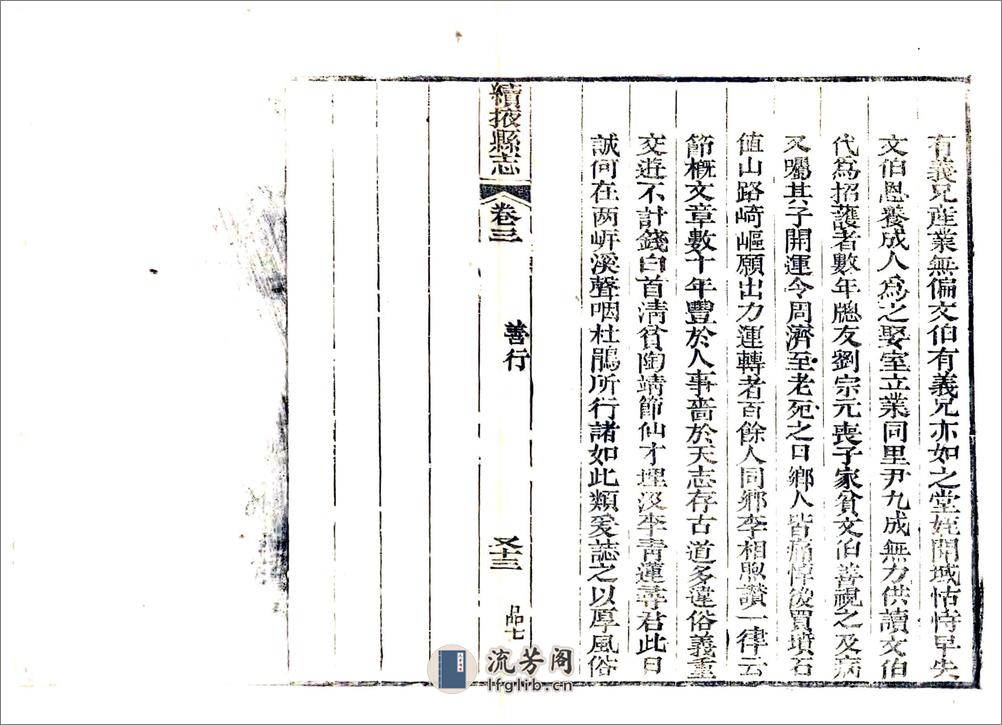 有義兄產業無偏文伯有義兄亦如之堂姪開域怙恃早失
文伯恩養成人為之娶室立業同里尹九成無力供讀文伯
代為招護者數年牕友劉宗元喪子家貧文伯善視之及病
又囑其子開運令周濟至老死之日鄉人皆痛悼後買墳石
值山路崎嶇願出力運轉者百餘人同鄉李相煦讚一律云
節概文章數十年豐於人事嗇於天志存古道多違俗義重
交遊不計錢白首清貧陶靖節仙才埋没李青蓮尋君此日
誠何在两岍溪聲咽杜鵑所行諸如此類爰誌之以厚風俗
續掖縣志
卷三
善行
又十三
品七
流芳阁
lfglib.cn